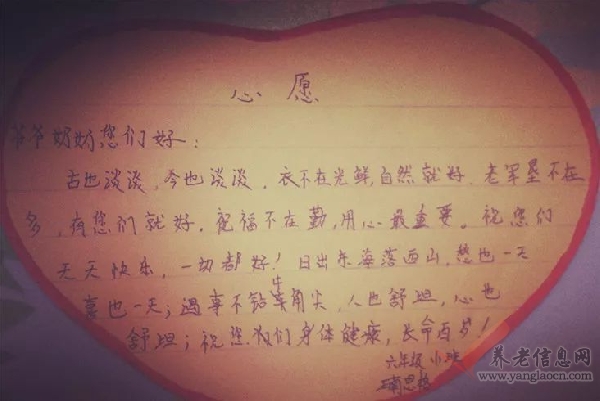 心愿
爷爷奶奶您们好：
古也淡淡，今也淡淡，衣不在光鲜，自然就好，老军垦不在
多，有您们就好，祝福不在勤，用心最重要。祝您们
天天快乐，一切都好！日出东海落西山，愁也一天
喜也一天，遇事不钻牛角尖，人也舒坦，心也
舒坦；祝您们身体健康，长命百岁！
六年级 小班
养老信息网
www.yanglaocn.com